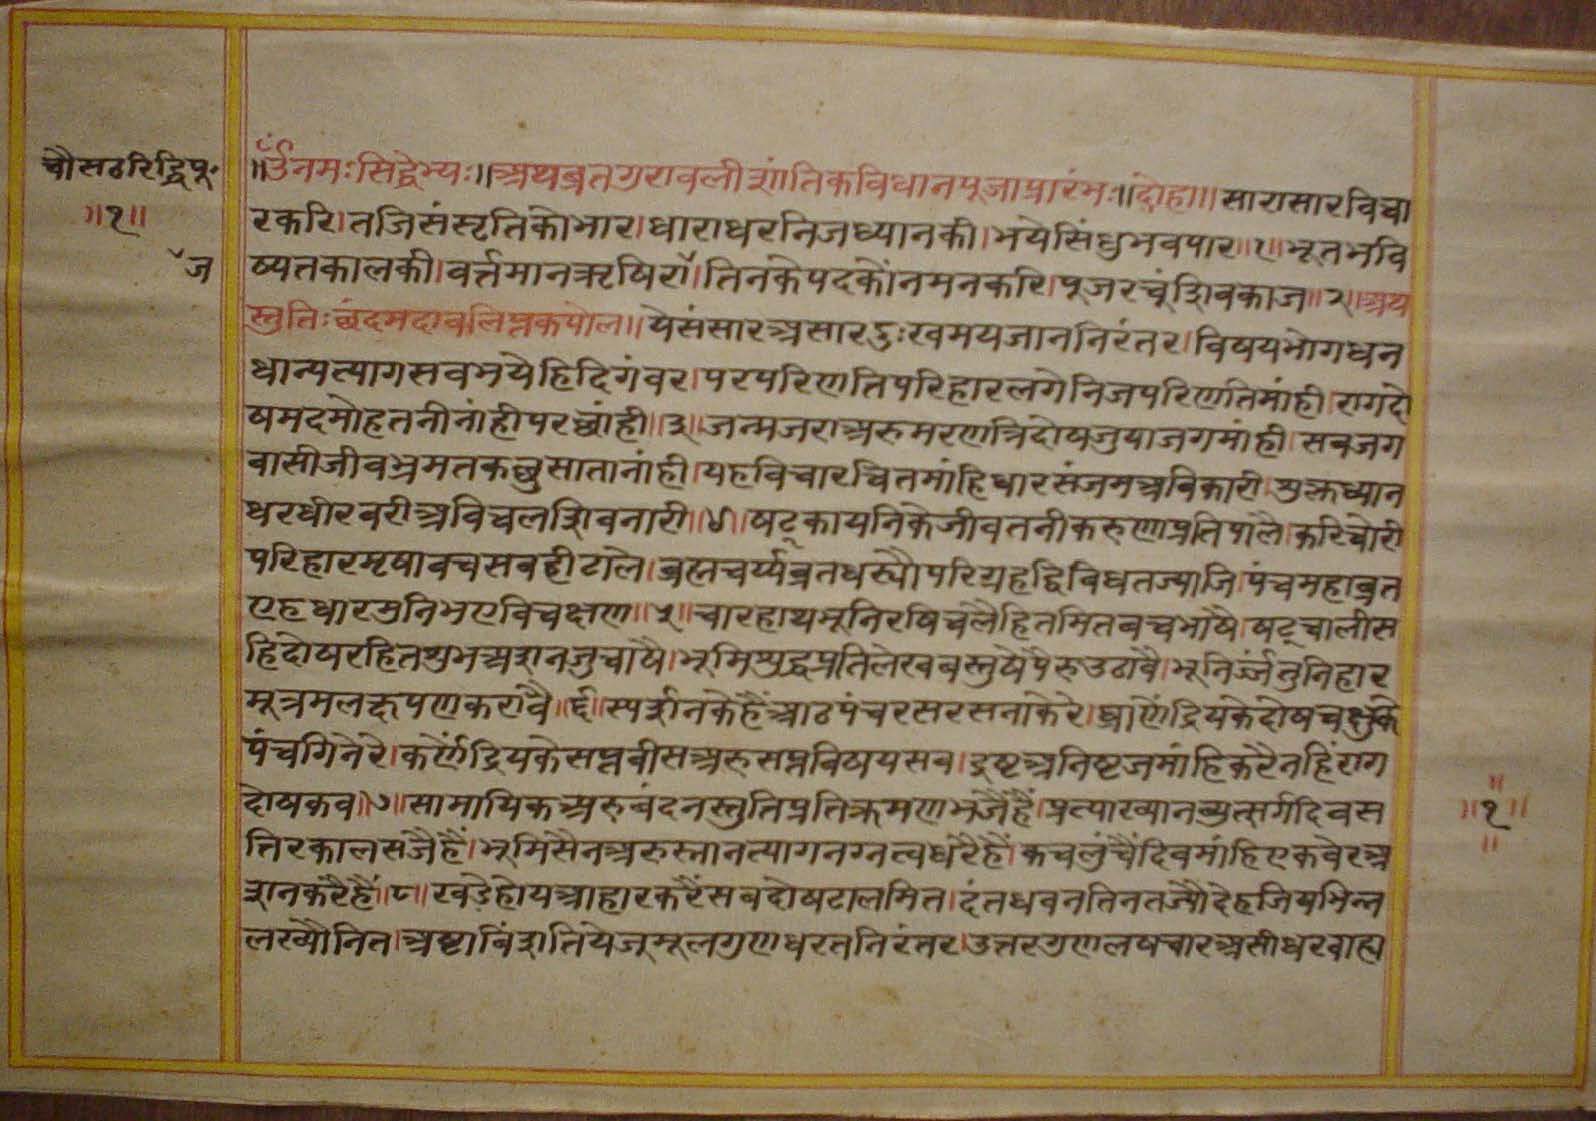 चौसठरिद्धिपू॰
॥१॥
ज
॥ॐनमःसिद्धेभ्यः॥अथब्रतगुरावलीशांतिकविधानपूजाप्रारंभः॥दोहा॥सारासारविचा
रकरि।तजिसंसृतिकोभार।धाराधरनिजध्यानकी।भयेसिंधुभवपार॥१॥भूतभवि
ष्यतकालकी।वर्त्तमानऋषिरा।तिनकेपदकौंनमनकरि।पूजरचूंशिवकाज॥२॥अथ
स्तुतिःछंदमदावलिप्तकपोल॥येसंसारअसारदुःखमयजाननिरंतर।विषयभोगधन
धान्यत्यागसवभयेहिदिगंवर।परपरिणतिपरिहारलगेनिजपरिणतिमांही।रागदो
षमदमोहतनीनांहीपरछांही॥३॥जन्मजराअरुमरणत्रिदोषजुयाजगमांही।सवजग
वासीजीवभ्रमतकछुसातानांही।यहविचारचितमांहिधारसंजमअविकारी।शुक्लध्यान
धरधीरवरीअविचलशिवनारी॥४॥षट्कायनिकेजीवतनीकरुणाप्रतिपालै।करिचोरी
परिहारमृषावचसवहीटाले।ब्रह्मचर्य्यब्रतधर्यौपरिग्रहद्विविधतज्याजि।पंचमहाब्रत
एहधारमुनिभएविचक्षण॥५॥चारहाथभूनिरषिचलैहितमितबचभाषै।षट्चालीस
हिदोषरहितशुभअशनजुचाषै।भूमिशुद्धप्रतिलेखबस्तुषेपैरुउठावै।भूनिर्ज्जंतुनिहार
मूत्रमलक्षपणकरावै॥६॥स्पर्शनकेहैंआठपंचरसरसनाकेरे।घ्राणेंद्रियकेदोषचक्षुके
पंचगिनेरे।कर्णेंद्रियकेसप्तबीसअरुसप्तविषयसव।इष्टअनिष्टजमांहिकरैनहिंराग
दोषकव॥७॥सामायिकअरुबंदनस्तुतिप्रतिक्रमणभजैहैं।प्रत्याख्यानब्युत्सर्गदिवस
तिरकालसजैहैं।भूमिसैनअरुस्नानत्यागनग्नत्वधरैहैं।कचलुंचैंदिवमांहिएकवेरअ
शनकरैहैं॥८॥खडेहोयआहारकरैंसबदोषटालमित।दंतधवनतिनतज्यौदेहजियभिन्न
लख्यौनित।अष्टाविंशतियेजूमूलगुणधरतनिरंतर।उत्तरगुणलषचारअसीधरवाह्य
॥१॥